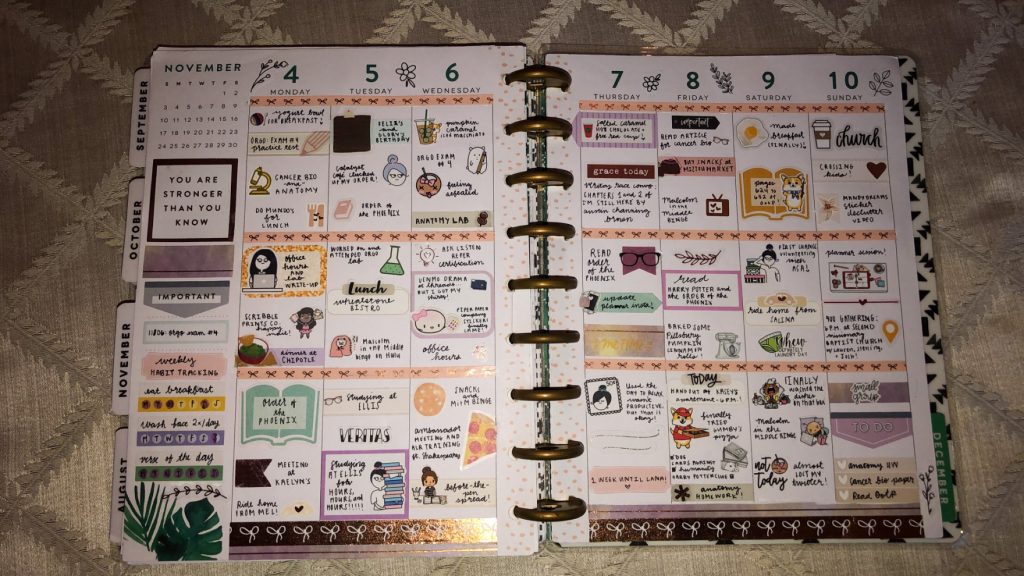 NOVEMBER
S M T W T F S
1 2
3 4 5 6 7 8 9
10 11 12 13 14 15 16
17 18 19 20 21 22 23
24 25 26 27 28 29 30
SEPTEMBER
OCTOBER
NOVEMBER
AUGUST
YOU ARE
STRONGER
THAN YOU
KNOW
IMPORTANT
weekly
HABIT TRACKING
eat breakfast
M T W T F S S
wash face 2x/day
M T W T F S S
verse of the day
4
MONDAY
yogurt bowl
for BREAKFAST
ORGO EXAM #4
practice test
CANCER BIO
and
ANATOMY
DO MUNDO'S
for
LUNCH
office
hours
AND
lab
WRITE-UP
SCRIBBLE
PRINTS CO.
dinner at
CHIPOTLE
ORDER
of the
PHOENIX
MEETING
at
KAELYN'S
RIDE HOME
from MEL!
5
TUESDAY
and
GLORY'S
BIRTHDAY
CATALYST
CAFÉ
UP MY ORDER!
ORDER
of the
PHOENIX
WORKED ON and
ATTENDED
ORGO
LAB
Lunch
WHEATSTONE
BISTRO
MALCOLM
in the Middle
binge on Hulu
Studying at
ELLIS
VERITAS
Studying
AT ELLIS
for
HOURS,
HOURS, and
HOURS!!!!!
6
WEDNESDAY
pumpkin
caramel
iced macchiato
ORGO EXAM
#4
feeling
defeated
ANATOMY LAB
ASK LISTEN
REFER
certification
VENMO DRAMA
at threads
BUT I GOT MY
SHIRT!
office
hours
SNACKS
AND
MITM BINGE
AMBASSADOR
MEETING AND
TRAINING
before-the-
pen
spread!
7
THURSDAY
salted caramel
HOT CHOCOLATE
grace today
Writing race comp.
CHAPTERS 1 and 2 of
I'M STILL HERE by
austin channing
brown
READ
ORDER
of the
PHOENIX
update
planner insta!
ME TIME
Used the
DAY TO BE
more
PRODUCTIVE,
BUT that is
okay!
1 WEEK UNTIL LANA!
8
FRIDAY
important
READ ARTICLE
for cancer bio
BUY SNACKS AT
MARKET
Malcolm
in the
MIDDLE
BINGE
read
HARRY POTTER and
the ORDER of the
PHOENIX
BAKED SOME
Pillsbury
PUMPKIN
CINNAMON
rolls!
Today
HANGOUT at KAELYN'S
APARTMENT
finally
TRIED
pizza
CARDS AGAINST
humanity
HARRY POTTER
anatomy
HOMEWORK
9
SATURDAY
made
breakfast
(FINALLY)
pages
624 to
652 of
OotP!
FIRST CHANCE
volunteering
with
ASA!
ride home from
SALINA
whew
LAUNDRY
DAY
FINALLY
washed the
dishes
Malcolm
in the
MIDDLEING
not
today
almost lost
my
twister!
10
SUNDAY
church
CROSSING
kids!
MANDYDREAMS
sticker
declutter
VIDEO
planner session!
GATHERING:
6PM at SECOND
BAPTIST CHURCH
small
group
TO DO
anatomy HW
Cancer bio paper
Read OotP
DECEMBER